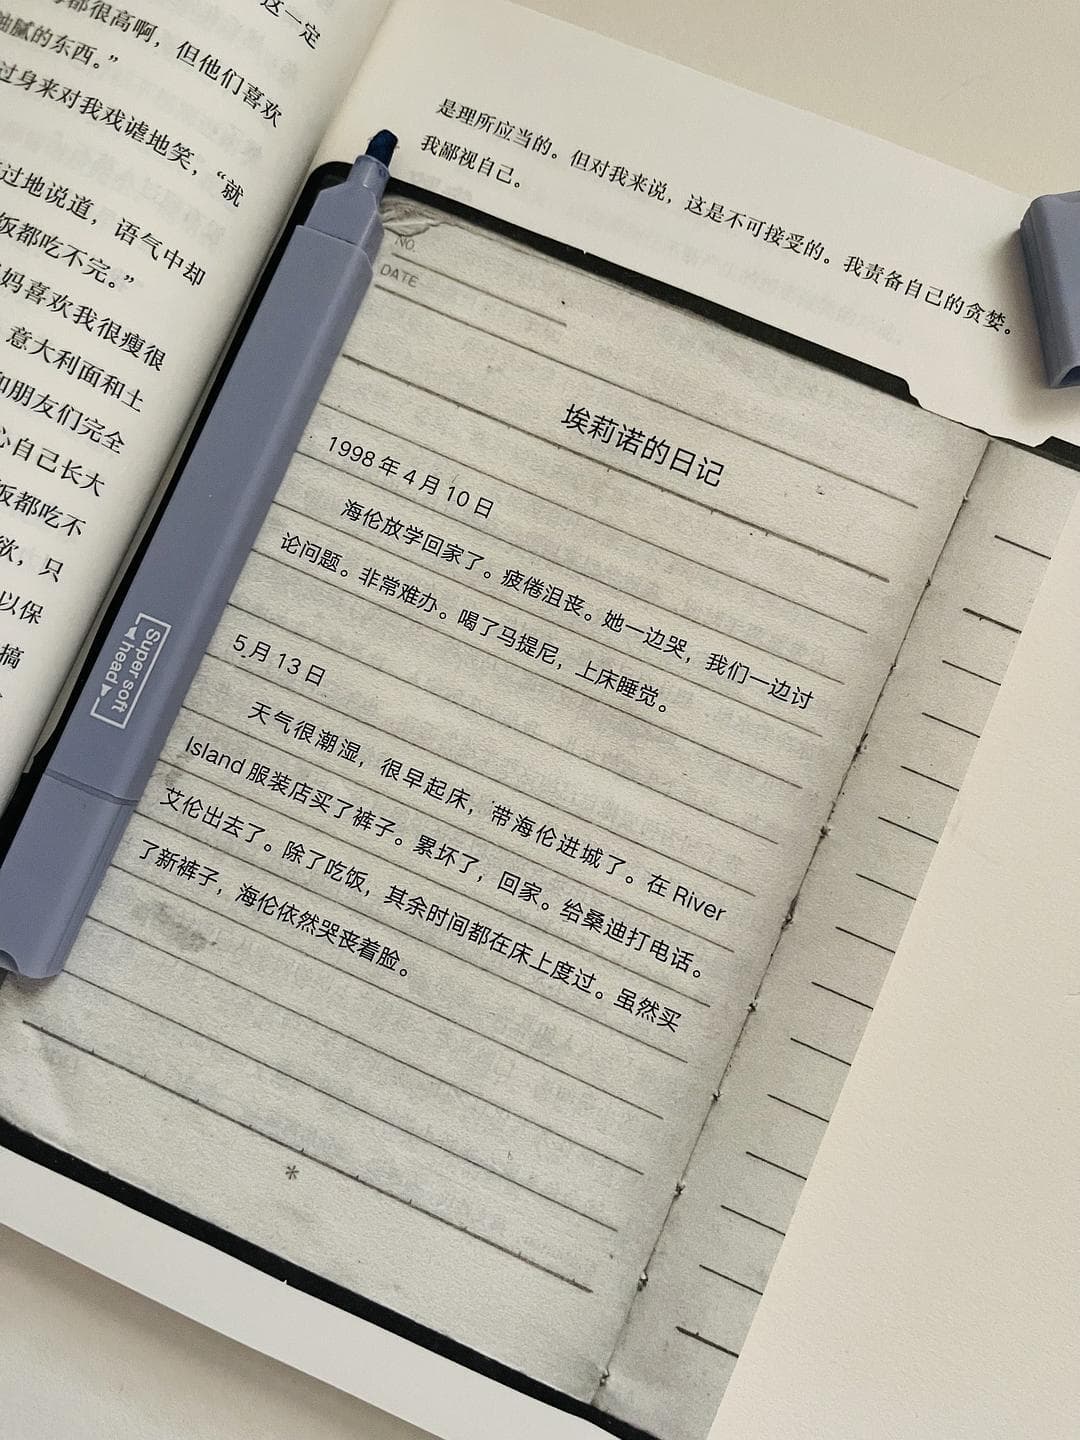 这一定
都很高啊，但他们喜欢
油腻的东西。”
过身来对我戏谑地笑，“就
过地说道，语气中却
饭都吃不完。”
妈喜欢我很瘦很
意大利面和土
和朋友们完全
心自己长大
饭都吃不
欲，只
以保
搞
是理所应当的。但对我来说，这是不可接受的。我责备自己的贪婪。
我鄙视自己。
NO.
DATE
埃莉诺的日记
1998 年 4 月 10 日
海伦放学回家了。疲倦沮丧。她一边哭，我们一边讨
论问题。非常难办。喝了马提尼，上床睡觉。
5 月 13 日
天气很潮湿，很早起床，带海伦进城了。在 River
Island 服装店买了裤子。累坏了，回家。给桑迪打电话。
艾伦出去了。除了吃饭，其余时间都在床上度过。虽然买
了新裤子，海伦依然哭丧着脸。
*
Super soft
◀head▶